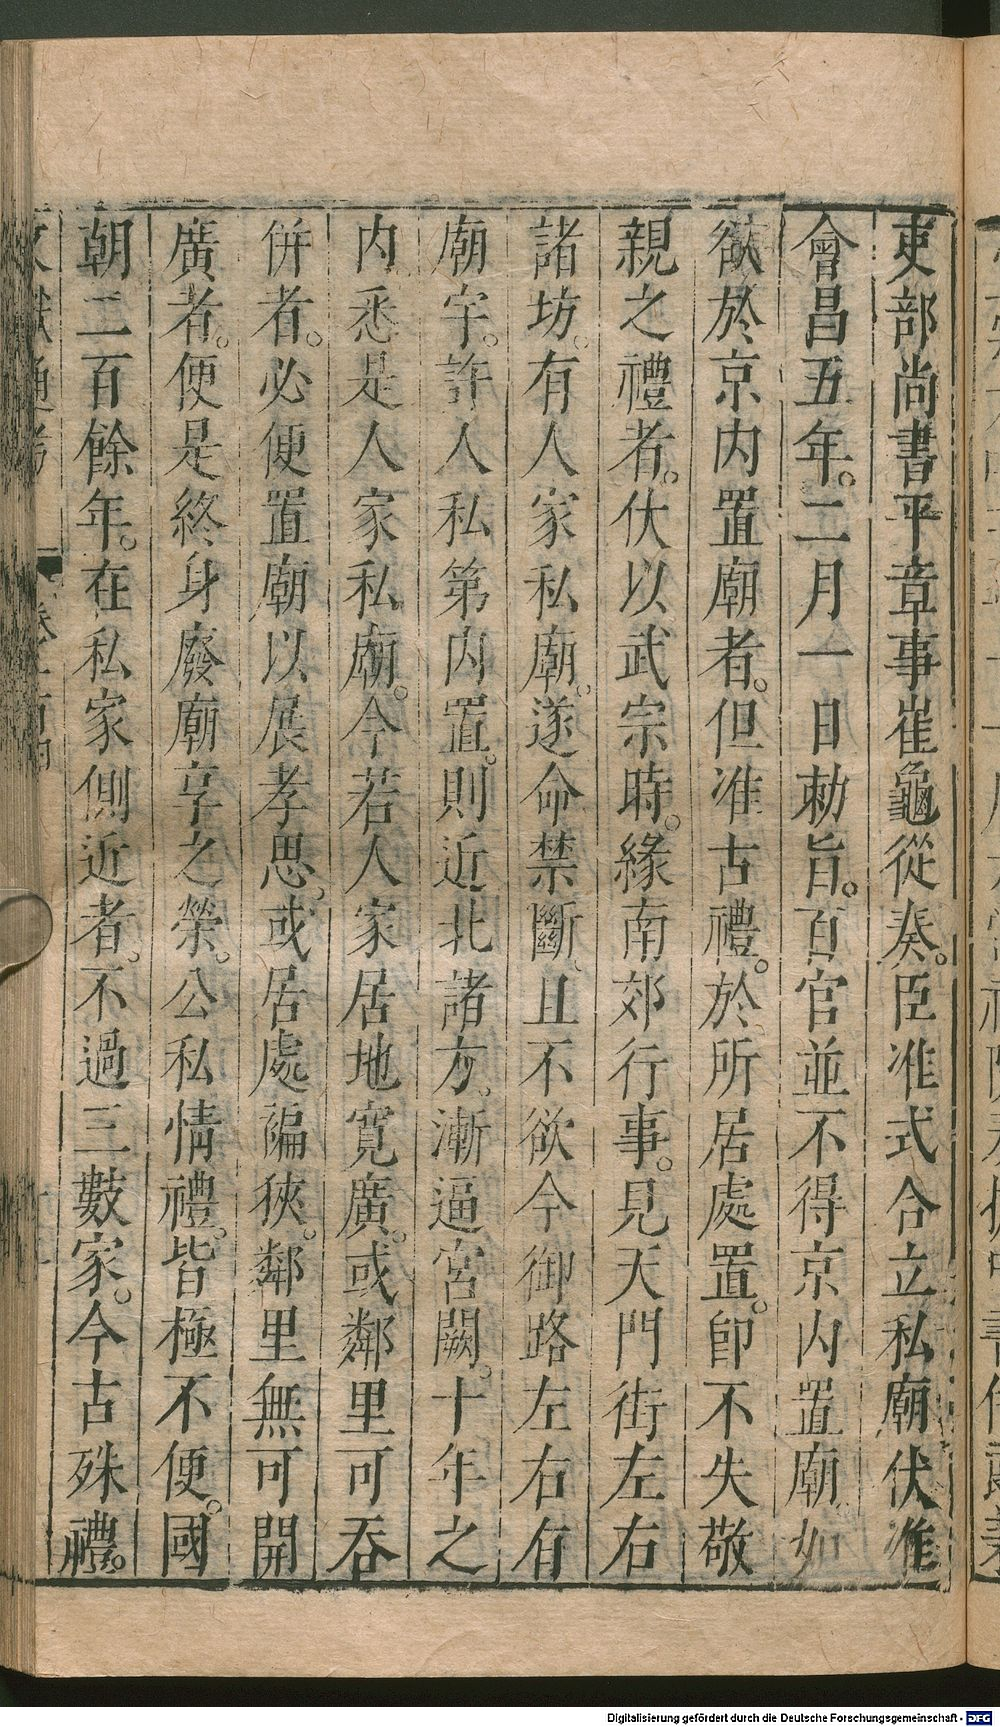 吏部尚書平章事崔龜從奏。臣准式合立私廟伏准
會昌五年。二月一日勅旨。百官並不得京內置廟如
欲於京內置廟者。但准古禮。於所居處置。即不失敬
親之禮者。伏以武宗時。緣南郊行事。見天門街左右
諸坊。有人家私廟。遂命禁斷、且不欲今御路左右有
廟宇。許人私第內置。則近北諸方、漸逼宮闕。十年之
內悉是人家私廟。今若人家居地寬廣。或鄰里可吞
併者。必便置廟以展孝思、或居處褊狹。鄰里無可開
廣者。便是終身廢廟享之榮。公私情禮。皆極不便。國
朝二百餘年。在私家側近者。不過三數家。今古殊禮。
Digitalisierung gefördert durch die Deutsche Forschungsgemeinschaft - DFG